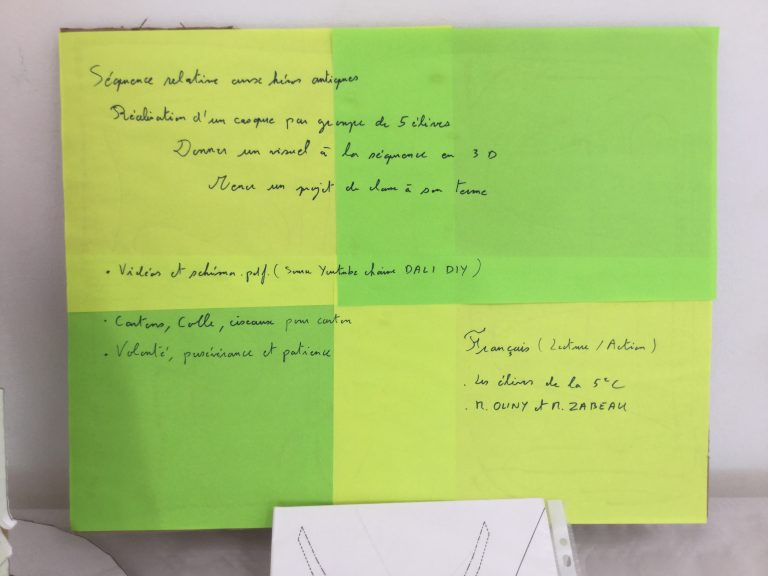 Séquence relative aux héros antiques
Réalisation d'un casque par groupe de 5 élèves
Donner un visuel à la séquence en 3D
Mener un projet de classe à son terme
• Vidéos et schéma.pdf. (Source Youtube chaîne DALI DIY)
• Cartons, Colle, ciseaux pour carton
• Volonté, persévérance et patience
Français (Lecture / Action)
. Les élèves de la 5e C
. M. OLINY et M. ZABEAU